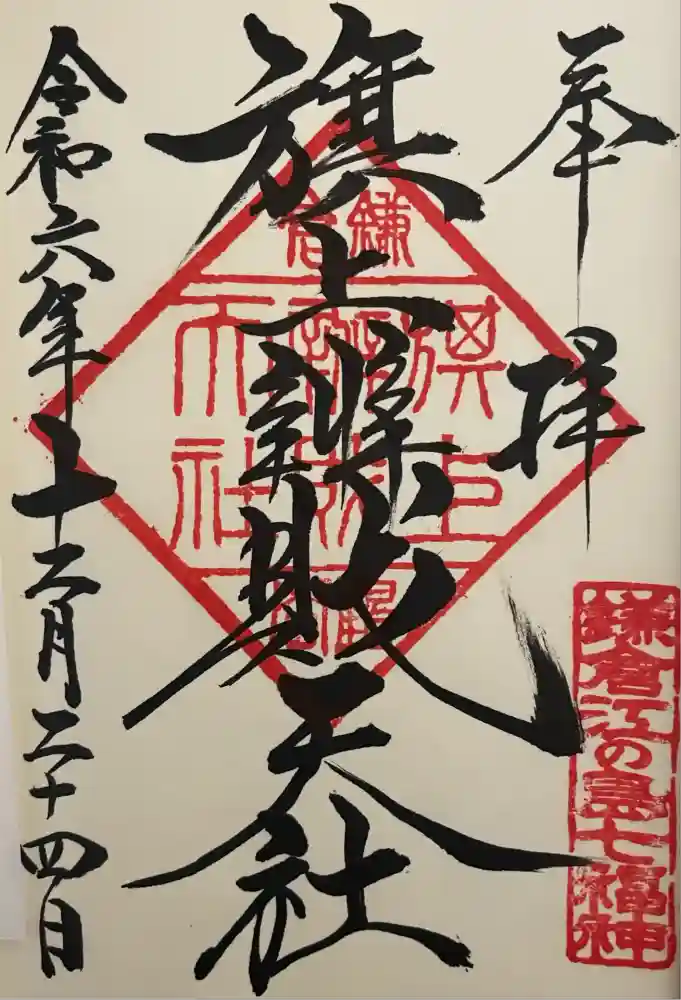 奉拝
旗上辨財天社
令和六年十二月二十四日
鎌倉
旗上
辨財
天社
鎌倉江の島七福神